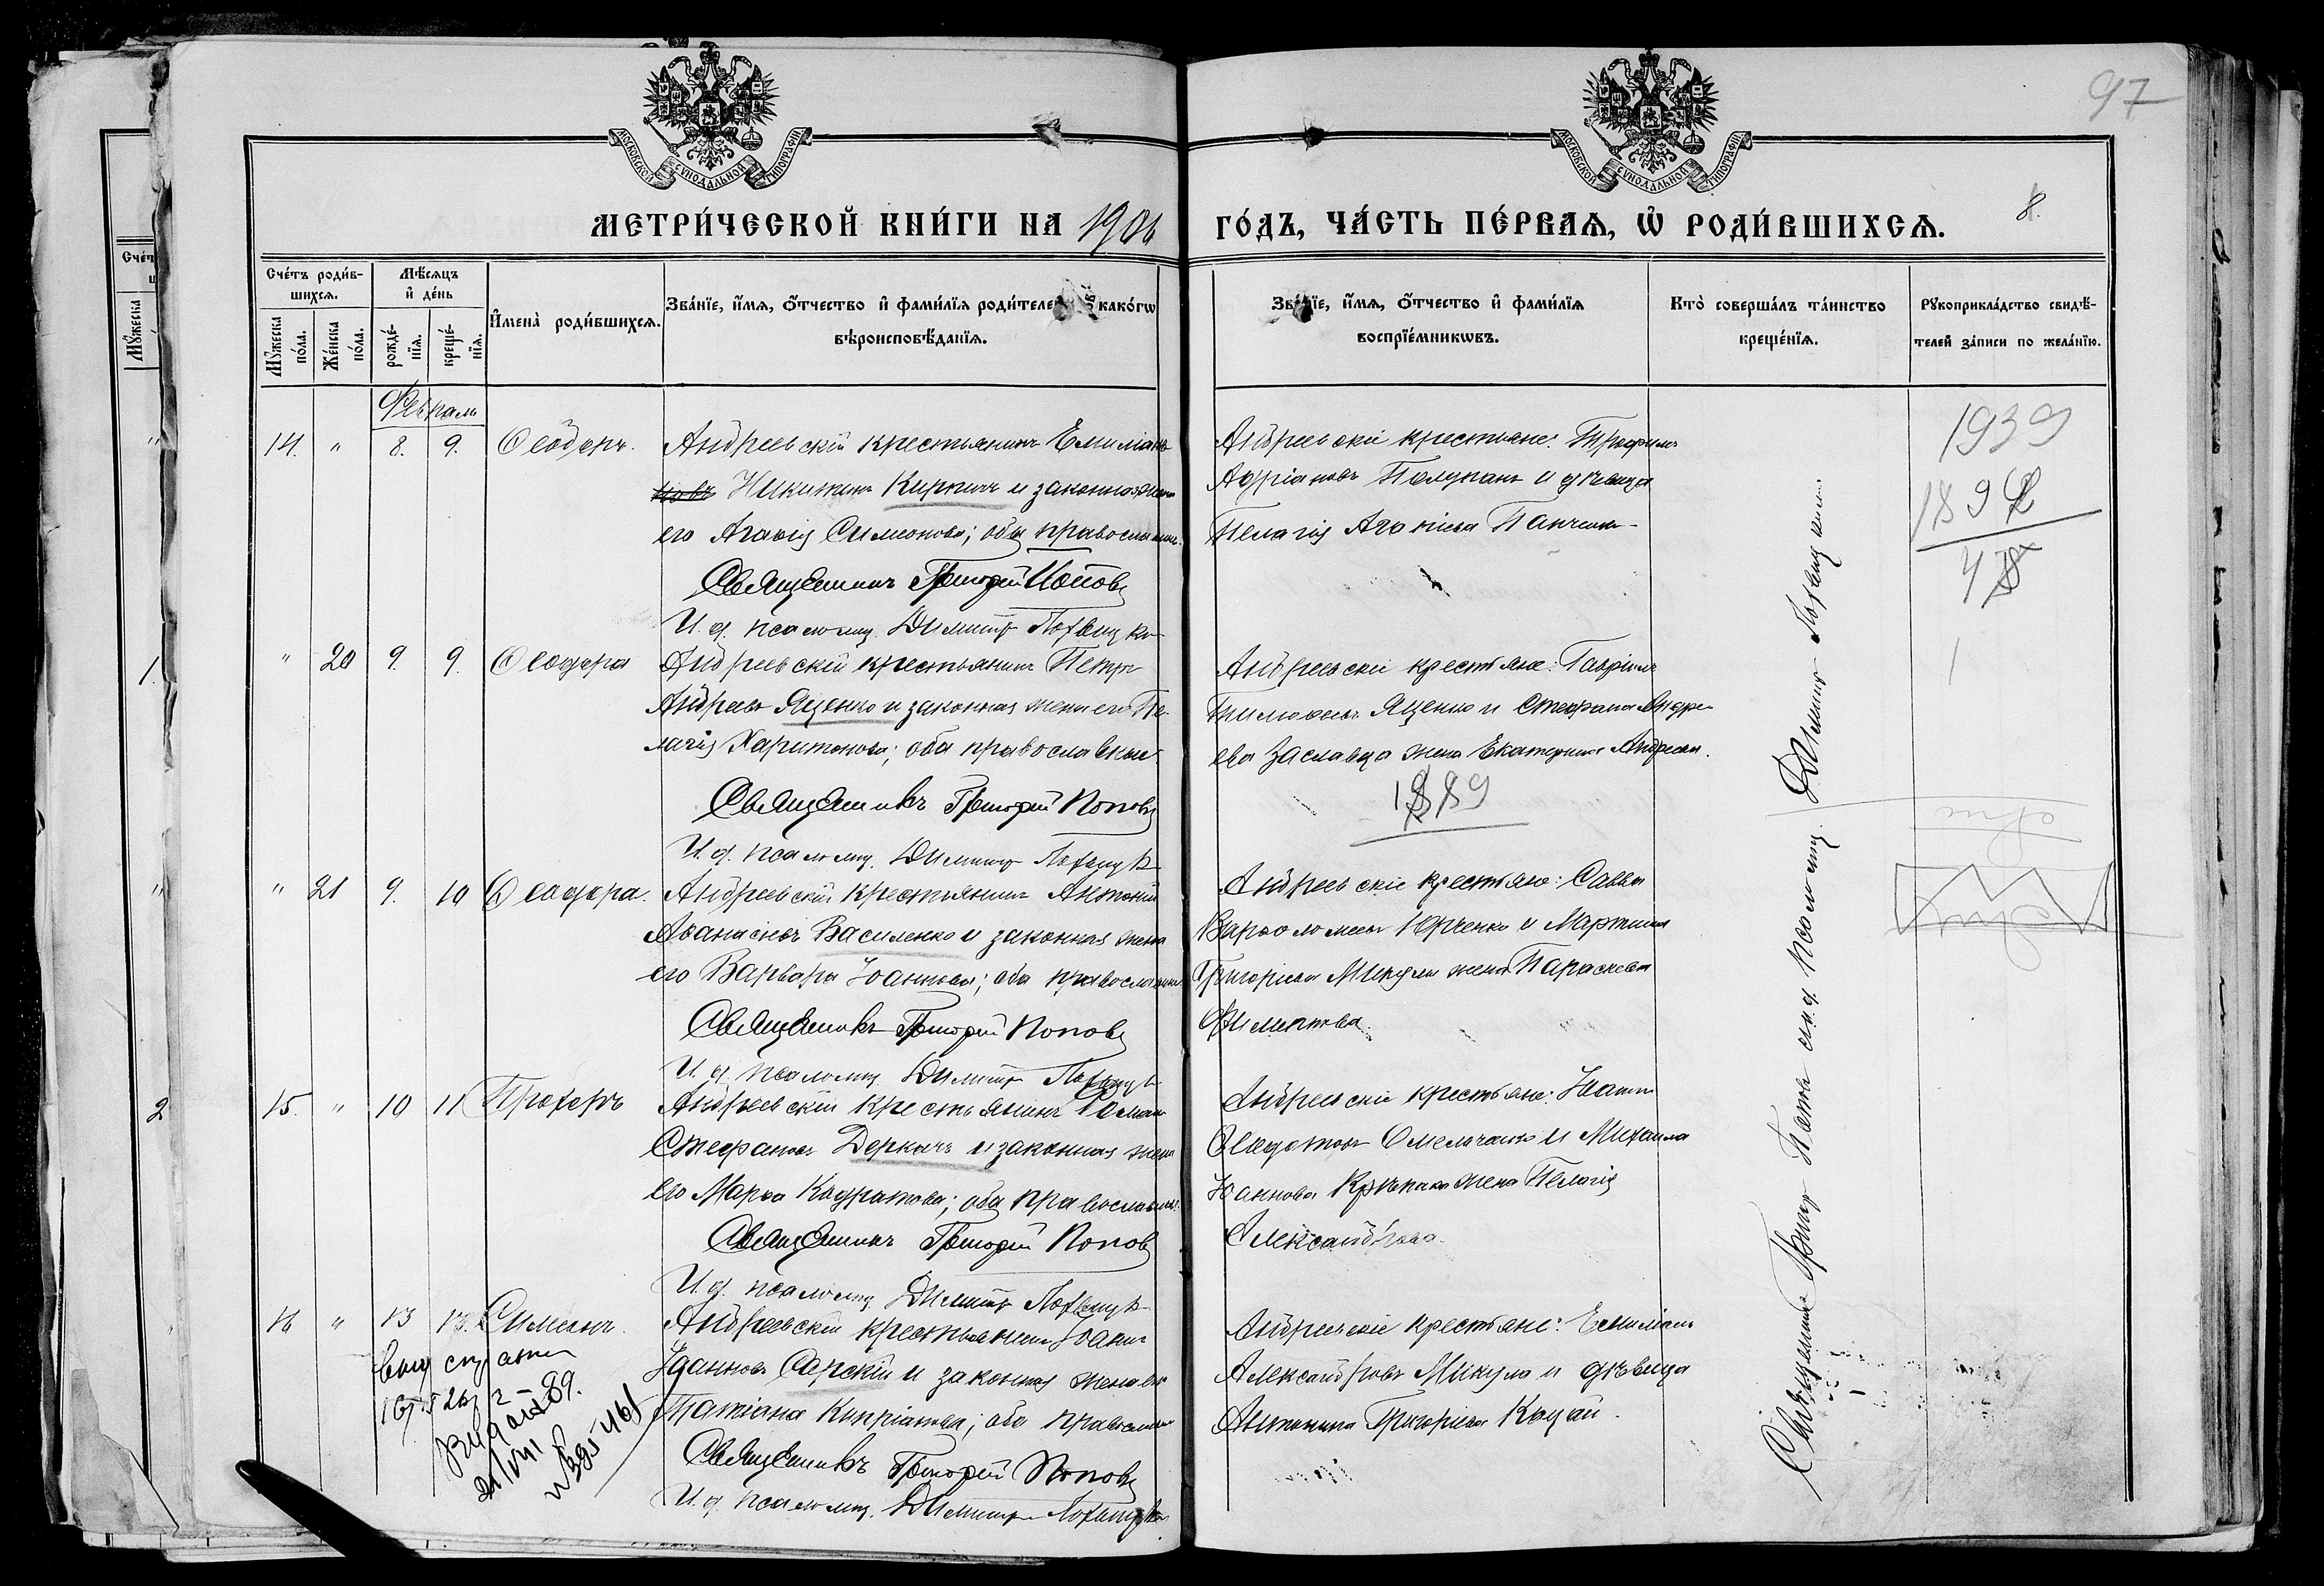 97
МОСКОВСКОЙ СУНОДАЛЬНОЙ ТИПОГРАФІИ
МОСКОВСКОЙ СУНОДАЛЬНОЙ ТИПОГРАФІИ
МЕТРИ́ЧЕСКОЙ КНИ́ГИ НА 1906
ГО́ДЪ, ЧА́СТЬ ПЕ́РВАѦ, Ѡ҆ РОДИ́ВШИХСѦ.
8.
Сче́тъ роди́в-
шихсѧ.
Мѣ́сѧцъ
и҆ де́нь
Мꙋ́жеска
по́ла.
Же́нска
по́ла.
рожде́-
нїѧ.
креще́-
нїѧ.
И҆мена̀ роди́вшихсѧ.
Зва́нїе, и҆́мѧ, ѻ҆́тчество и҆ фами́лїѧ роди́теле како́гѡ
вѣроисповѣ́данїѧ.
Зва́нїе, и҆́мѧ, ѻ҆́тчество и҆ фами́лїѧ
воспрїе́мникѡвъ.
Кто̀ соверша́лъ та́инство
креще́нїѧ.
Рꙋкоприкла́дство свидѣ́-
телей за́писи по жела́нїю.
Февраль
14. " 8. 9. Ѳеодоръ. Андреевскій крестьянинъ Емиліанъ
Никитинъ Кирпичъ и законная жена
его Агаѳія Симеонова; оба православные.
Священникъ Григорій Поповъ
И. д. псаломщ. Димитр
Андреевскіе крестьяне: Трифилъ
Адріановъ и дѣвица
Пелагія
1939
189
4
" 20 9. 9. Ѳеодора Андреевскій крестьянинъ Петръ
Андреевъ Яценко и законная жена его Пе-
лагія Харитонова; оба православные
Священникъ Григорій Поповъ
И. д. псаломщ. Димитр
Андреевскіе крестьяне: Гавріилъ
Тимоѳеевъ Яценко и Стефана Андре-
ева Заславца жена Екатерина Андреева.
1889
1
" 21 9. 10 Ѳеодора. Андреевскій крестьянинъ Антоній
Аѳанасіевъ Василенко и законная жена
его Варвара Іоаннова; оба православные
Священникъ Григорій Поповъ
И. д. псаломщ. Димитр
Андреевскіе крестьяне: Савва
Варѳоломеевъ Юрченко и Мартина
Григоріева жена Параскева
15. " 10 11 Прохоръ Андреевскій крестьянинъ Романъ
Стефановъ Деркачъ и законная жена
его Марѳа Кодратова; оба православные.
Священникъ Григорій Поповъ
И. д. псаломщ. Димитр
Андреевскіе крестьяне: Іоаннъ
Ѳеодотовъ Омельченко и Михаила
Іоаннова жена Пелагія
Александрова.
16 " 13 13. Симеонъ. Андреевскій крестьянинъ Іоаннъ
Іоанновъ Сарскій и законная жена его
Татіана Кипріанова; оба православные
Священникъ Григорій Поповъ
И. д. псаломщ. Димитр
Андреевскіе крестьяне: Емиліанъ
Александровъ Микула и дѣвица
Антонина Григоріева Коцай.
Священникъ Григор Поповъ и. д. псаломщ. Димитр
1
2